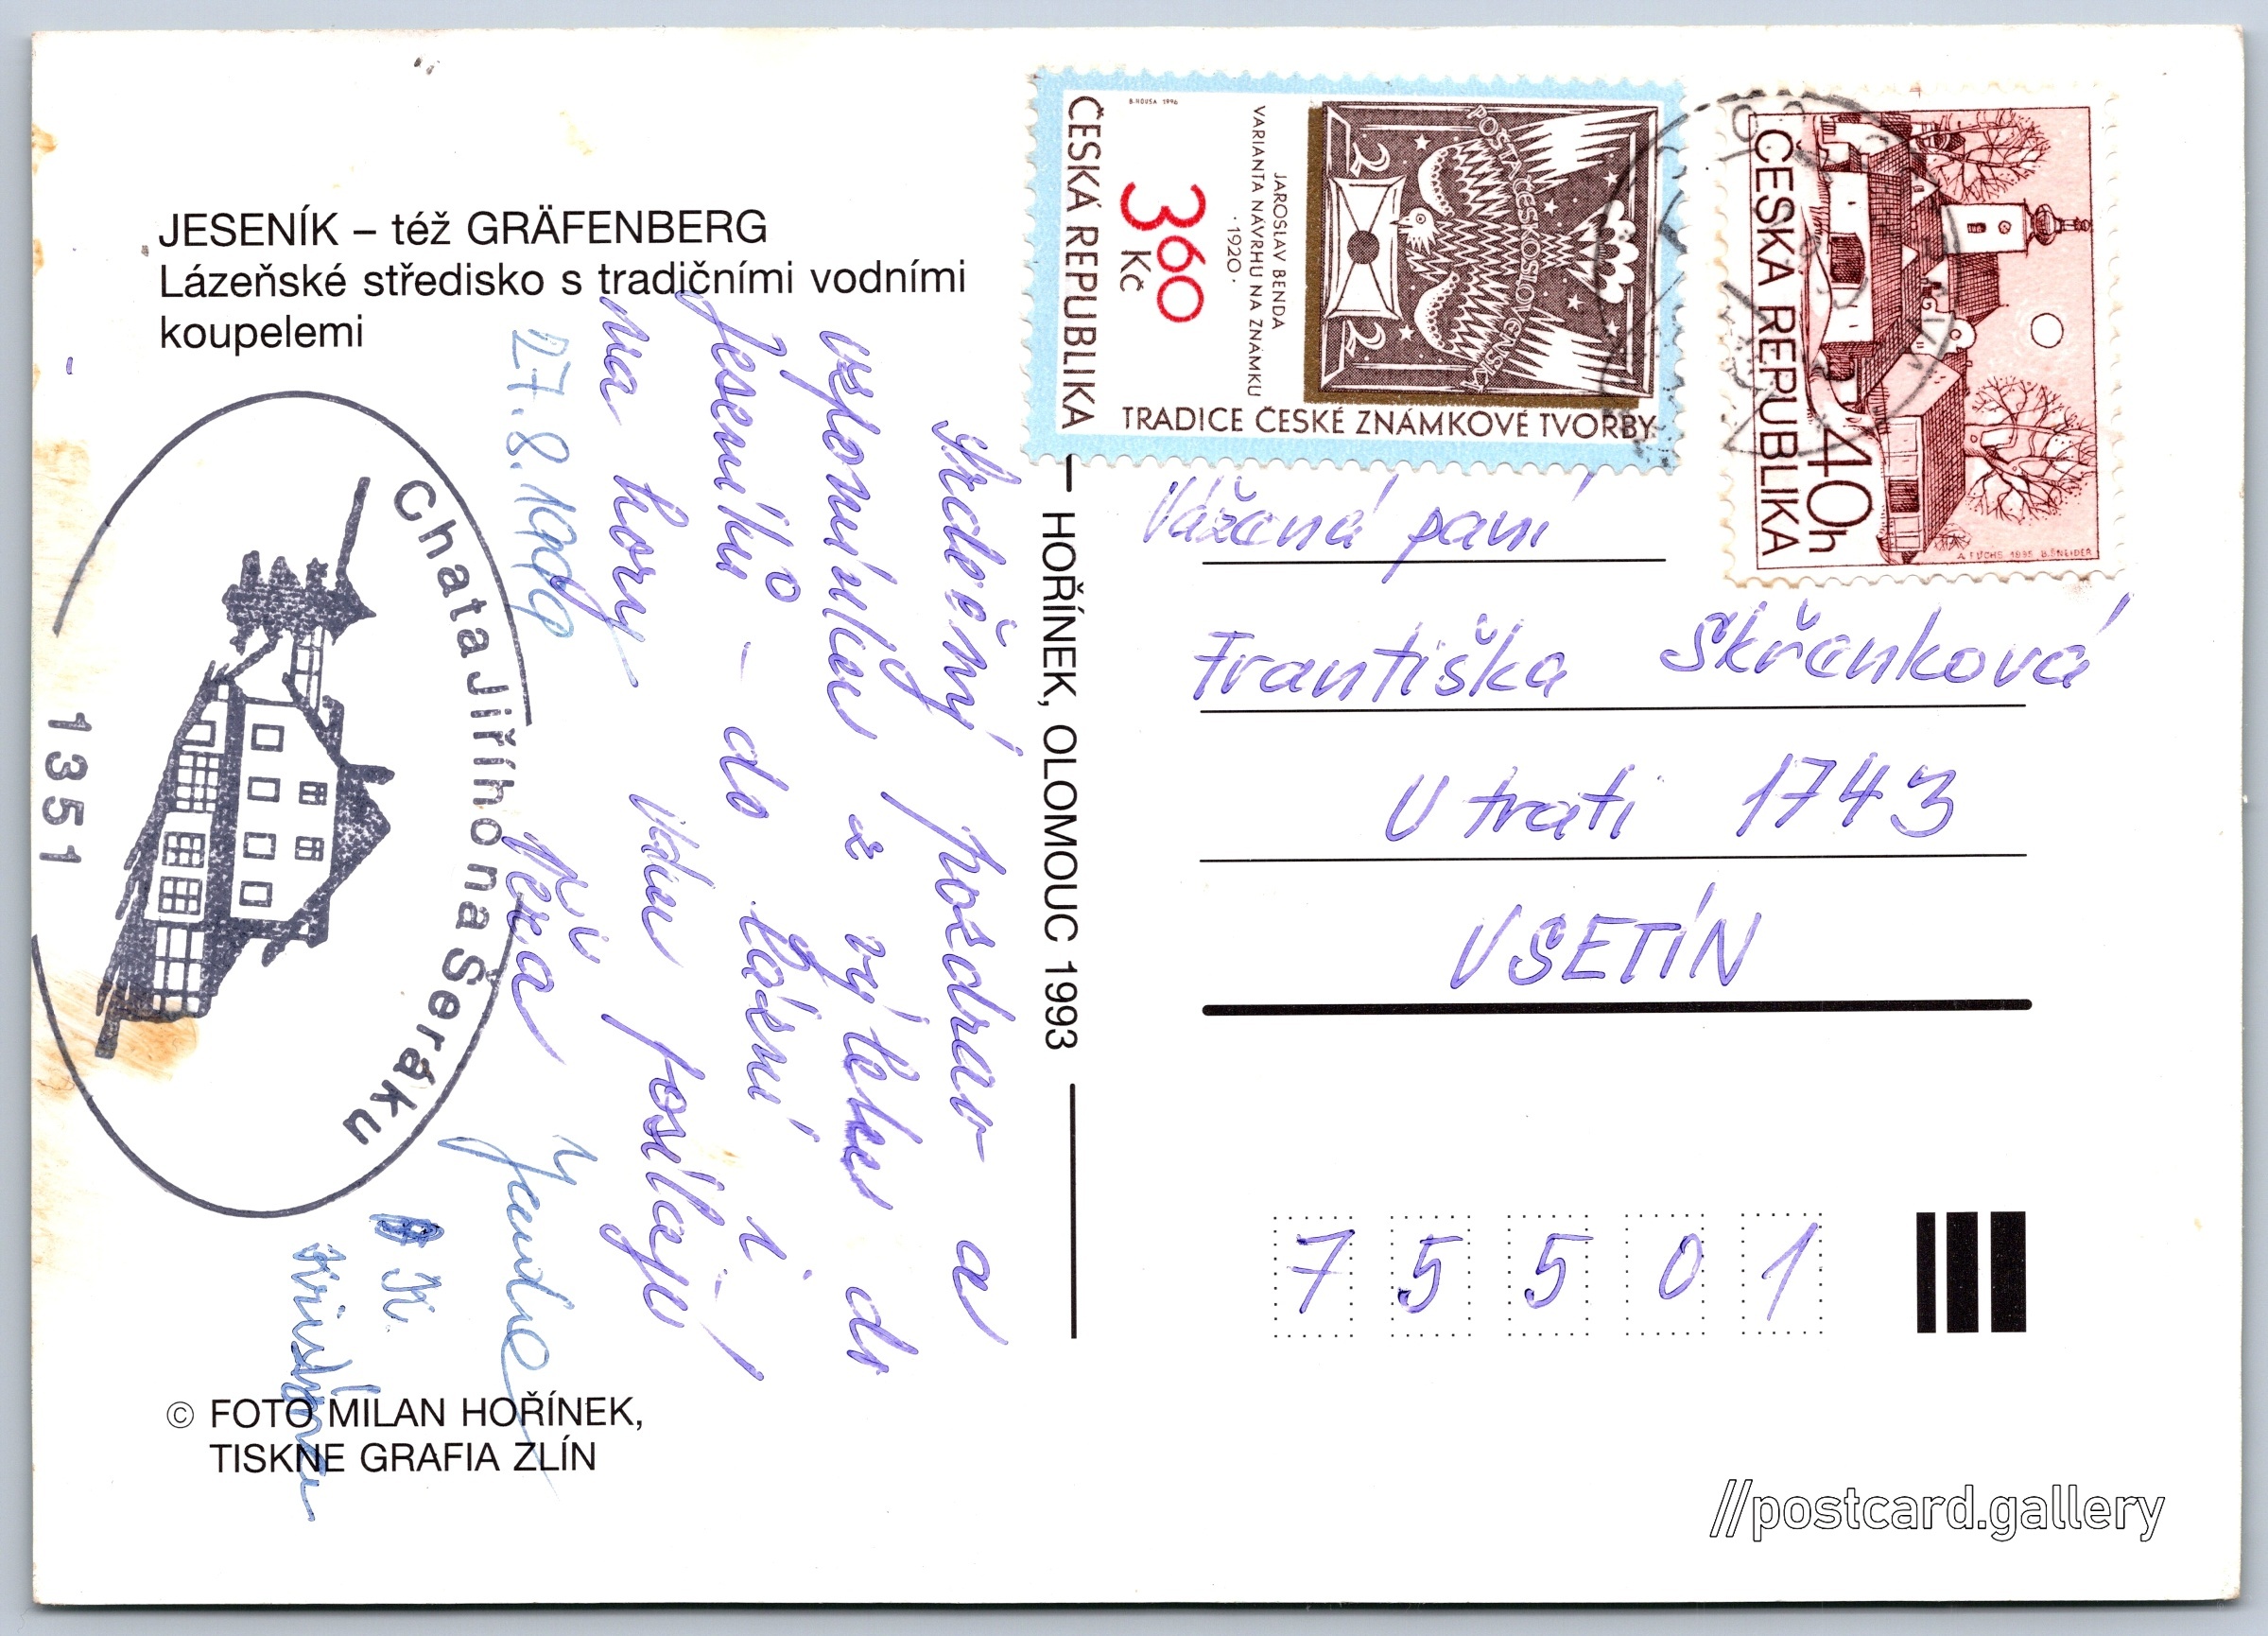 JESENÍK – též GRÄFENBERG
Lázeňské středisko s tradičními vodními
koupelemi
Srdečný pozdrav a
vzpomínku z výletu do
Jeseníků – do lázní i
na hory Vám posílají
27.8.1996
Věra
K.
Chata Jiřího na Šeráku
1351
© FOTO MILAN HOŘÍNEK,
TISKNE GRAFIA ZLÍN
— HOŘÍNEK, OLOMOUC 1993
B. HOUSA 1996
ČESKÁ REPUBLIKA
3,60
Kč
VARIANTA NÁVRHU NA ZNÁMKU
JAROSLAV BENDA
· 1920 ·
2
2
POŠTA ČESKOSLOVENSKÁ
TRADICE ČESKÉ ZNÁMKOVÉ TVORBY
ČESKÁ REPUBLIKA
40h
A. FUCHS 1995 B. ŠNEIDER
Vážená paní
Františka Skřenková
U trati 1743
VSETÍN
75501
//postcard.gallery